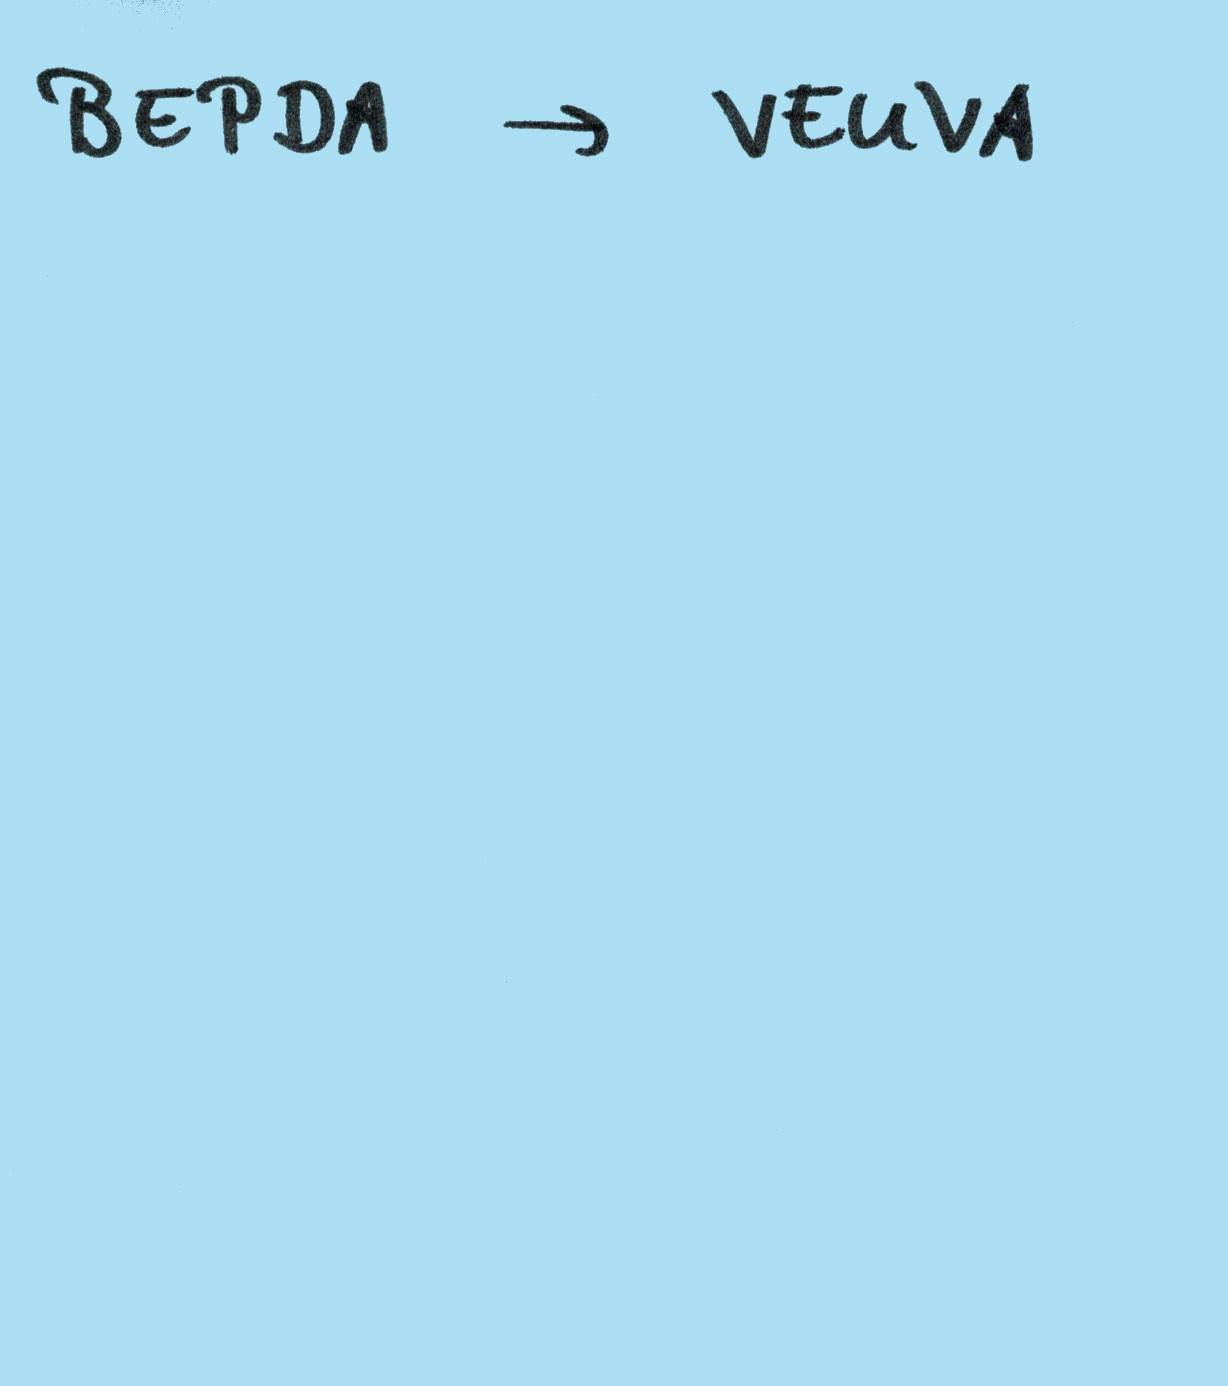 BEPDA → VEUVA